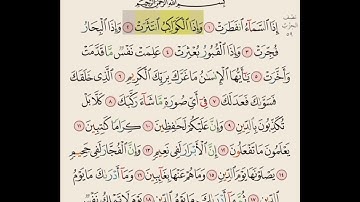 بِسْمِ اللَّهِ الرَّحْمَٰنِ الرَّحِيمِ
إِذَا السَّمَاءُ انفَطَرَتْ ١ وَإِذَا الْكَوَاكِبُ انتَثَرَتْ ٢ وَإِذَا الْبِحَارُ
فُجِّرَتْ ٣ وَإِذَا الْقُبُورُ بُعْثِرَتْ ٤ عَلِمَتْ نَفْسٌ مَّا قَدَّمَتْ
وَأَخَّرَتْ ٥ يَا أَيُّهَا الْإِنسَانُ مَا غَرَّكَ بِرَبِّكَ الْكَرِيمِ ٦ الَّذِي خَلَقَكَ
فَسَوَّاكَ فَعَدَلَكَ ٧ فِي أَيِّ صُورَةٍ مَّا شَاءَ رَكَّبَكَ ٨ كَلَّا بَلْ
تُكَذِّبُونَ بِالدِّينِ ٩ وَإِنَّ عَلَيْكُمْ لَحَافِظِينَ ١٠ كِرَامًا كَاتِبِينَ ١١
يَعْلَمُونَ مَا تَفْعَلُونَ ١٢ إِنَّ الْأَبْرَارَ لَفِي نَعِيمٍ ١٣ وَإِنَّ الْفُجَّارَ لَفِي جَحِيمٍ
١٤ يَصْلَوْنَهَا يَوْمَ الدِّينِ ١٥ وَمَا هُمْ عَنْهَا بِغَائِبِينَ ١٦ وَمَا أَدْرَاكَ مَا يَوْمُ
الدِّينِ ١٧ ثُمَّ مَا أَدْرَاكَ مَا يَوْمُ الدِّينِ ١٨ يَوْمَ لَا تَمْلِكُ نَفْسٌ